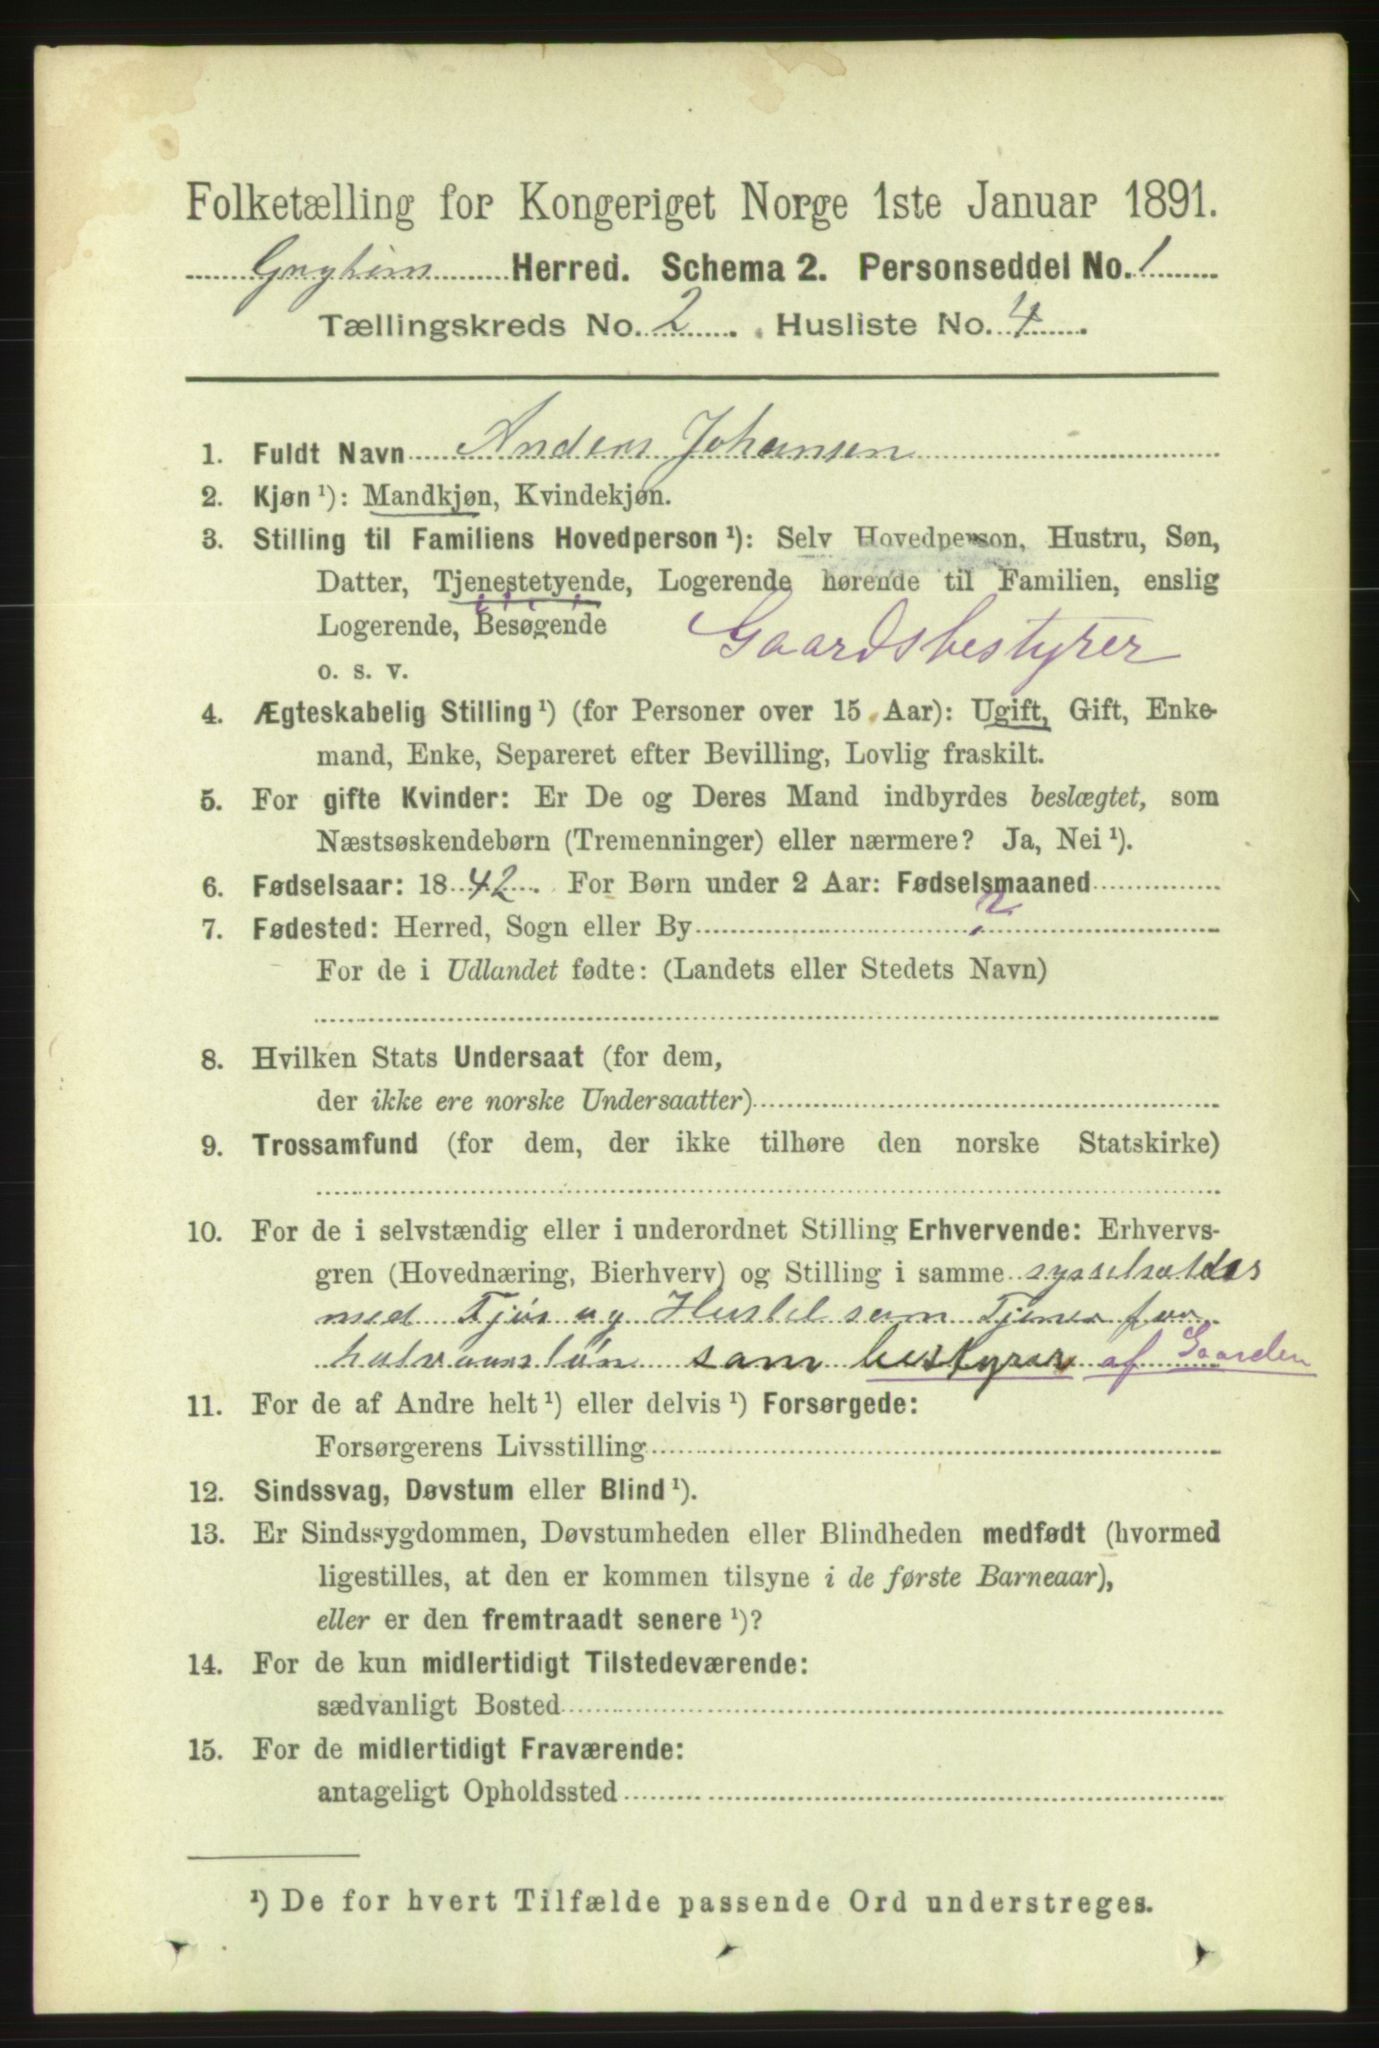 Folketælling for Kongeriget Norge 1ste Januar 1891.
Herred. Schema 2. Personseddel No. 1
Tællingskreds No. 2. Husliste No. 4.
1. Fuldt Navn Anders Johansen
2. Kjøn ¹): Mandkjøn, Kvindekjøn.
3. Stilling til Familiens Hovedperson ¹): Selv Hovedperson, Hustru, Søn,
Datter, Tjenestetyende, Logerende hørende til Familien, enslig
Logerende, Besøgende Gaardsbestyrer
o. s. v.
4. Ægteskabelig Stilling ¹) (for Personer over 15 Aar): Ugift, Gift, Enke-
mand, Enke, Separeret efter Bevilling, Lovlig fraskilt.
5. For gifte Kvinder: Er De og Deres Mand indbyrdes beslægtet, som
Næstsøskendebørn (Tremenninger) eller nærmere? Ja, Nei ¹).
6. Fødselsaar: 1842. For Børn under 2 Aar: Fødselsmaaned
7. Fødested: Herred, Sogn eller By ?
For de i Udlandet fødte: (Landets eller Stedets Navn)
8. Hvilken Stats Undersaat (for dem,
der ikke ere norske Undersaatter)
9. Trossamfund (for dem, der ikke tilhøre den norske Statskirke)
10. For de i selvstændig eller i underordnet Stilling Erhvervende: Erhvervs-
gren (Hovednæring, Bierhverv) og Stilling i samme sysselsættes
med og som Tjener for
som bestyrer af Gaarden
11. For de af Andre helt ¹) eller delvis ¹) Forsørgede:
Forsørgerens Livsstilling
12. Sindssvag, Døvstum eller Blind ¹).
13. Er Sindssygdommen, Døvstumheden eller Blindheden medfødt (hvormed
ligestilles, at den er kommen tilsyne i de første Barneaar),
eller er den fremtraadt senere ¹)?
14. For de kun midlertidigt Tilstedeværende:
sædvanligt Bosted
15. For de midlertidigt Fraværende:
antageligt Opholdssted
¹) De for hvert Tilfælde passende Ord understreges.